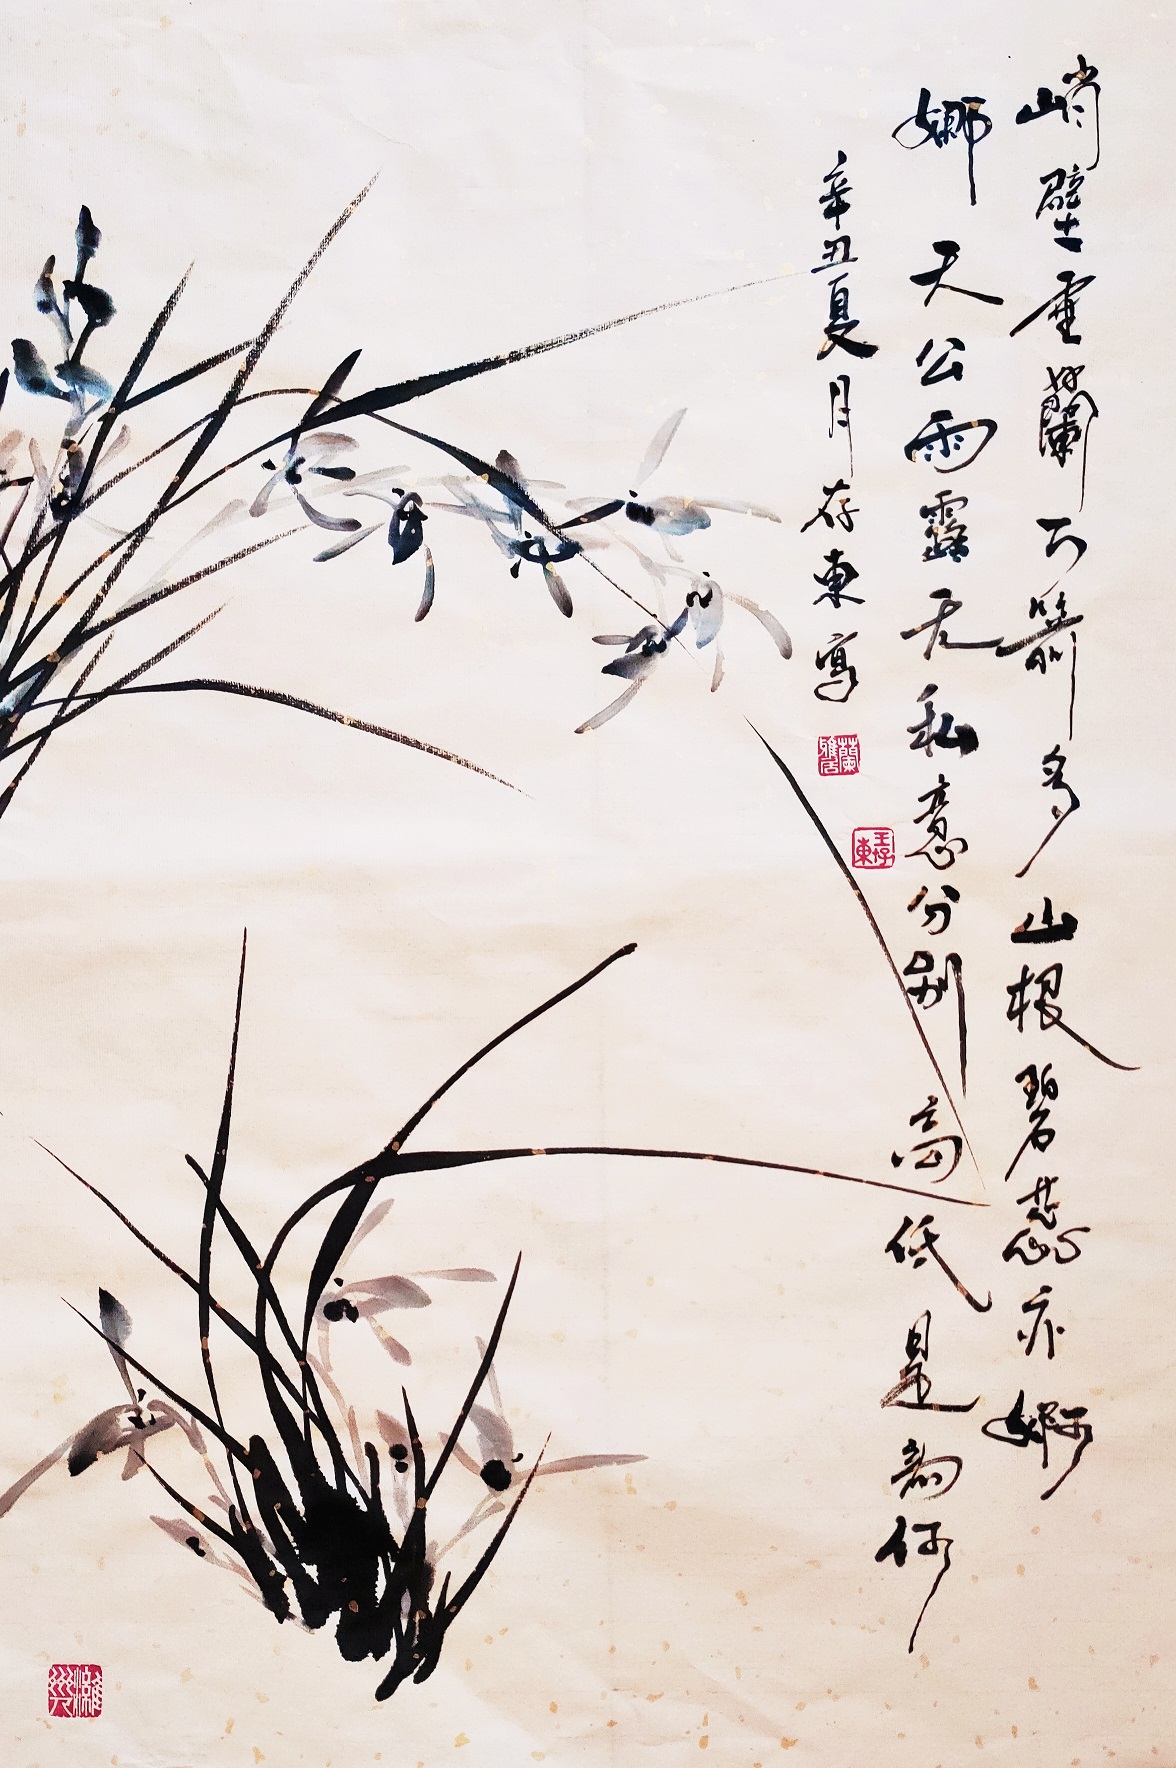 峭壁垂蘭万箭多山根碧蕊亦婀
娜天公雨露无私意分别高低是為何
辛丑夏月存東寫
王存東